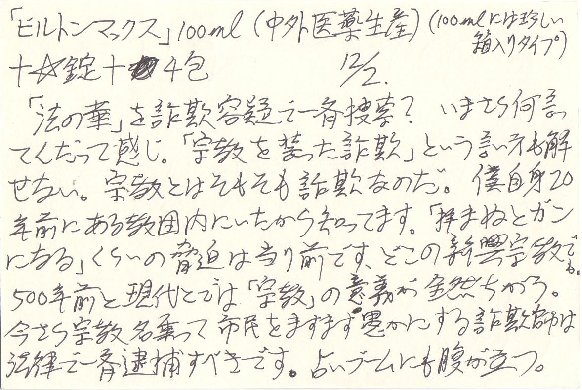 「ビルトンマックス」100ml（中外医薬生産）（100mlには珍しい
箱入りタイプ）
十☆錠十 4包
12/2.
「法の華」を詐欺容疑で一斉捜索？ いまさら何言
てんだって感じ。「宗教を装った詐欺」という言い方も解
せない。宗教とはそもそも詐欺なのだ。僕自身20
年前にある教団内にいたから知ってます。「拝まぬとガン
になる」くらいの脅迫は当り前です、どこの新興宗教でも。
500年前と現代とでは「宗教」の意義が全然ちがう。
今さら宗教名乗って市民をますます愚かにする詐欺師は
法律で一斉逮捕すべきです。占いブームにも腹が立つ。